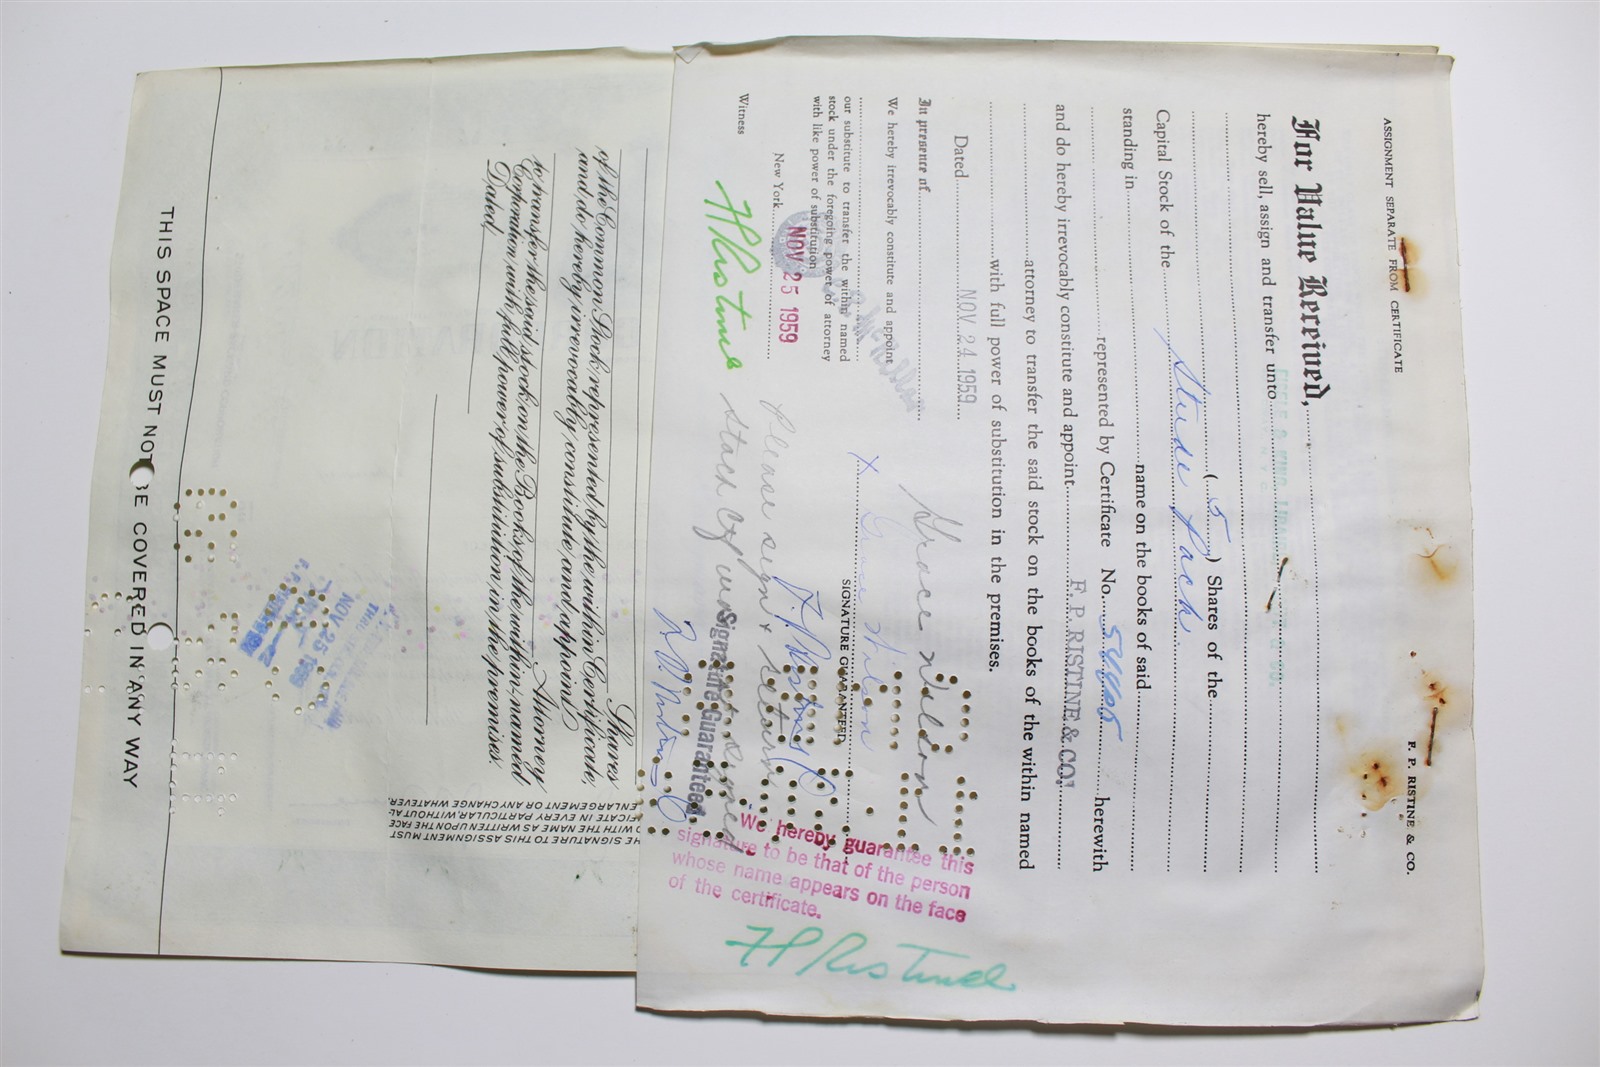 ASSIGNMENT SEPARATE FROM CERTIFICATE
F. P. RISTINE & CO.
For Value Received,
hereby sell, assign and transfer unto
( 5 ) Shares of the
Capital Stock of the Stude Pack
standing in name on the books of said
represented by Certificate No. herewith
and do hereby irrevocably constitute and appoint F. P. RISTINE & CO.
attorney to transfer the said stock on the books of the within named
with full power of substitution in the premises.
Dated NOV 24 1959
Grace Wilson
In presence of
X Grace Wilson
SIGNATURE GUARANTEED
We hereby irrevocably constitute and appoint
our substitute to transfer the within named
stock under the foregoing power of attorney
with like power of substitution
New York NOV 25 1959
Witness
F P Ristine
Please sign & return
stock cert unsigned
Signature Guaranteed
We hereby guarantee this
signature to be that of the person
whose name appears on the face
of the certificate.
F P Ristine
Shares
of the Common Stock represented by the within Certificate,
and do hereby irrevocably constitute and appoint
Attorney
to transfer the said stock on the Books of the within-named
Corporation with full power of substitution in the premises.
Dated
HE SIGNATURE TO THIS ASSIGNMENT MUST
D WITH THE NAME AS WRITTEN UPON THE FACE
FICATE IN EVERY PARTICULAR, WITHOUT AL-
ENLARGEMENT OR ANY CHANGE WHATEVER.
NOV 25 1959
THIS SPACE MUST NOT BE COVERED IN ANY WAY